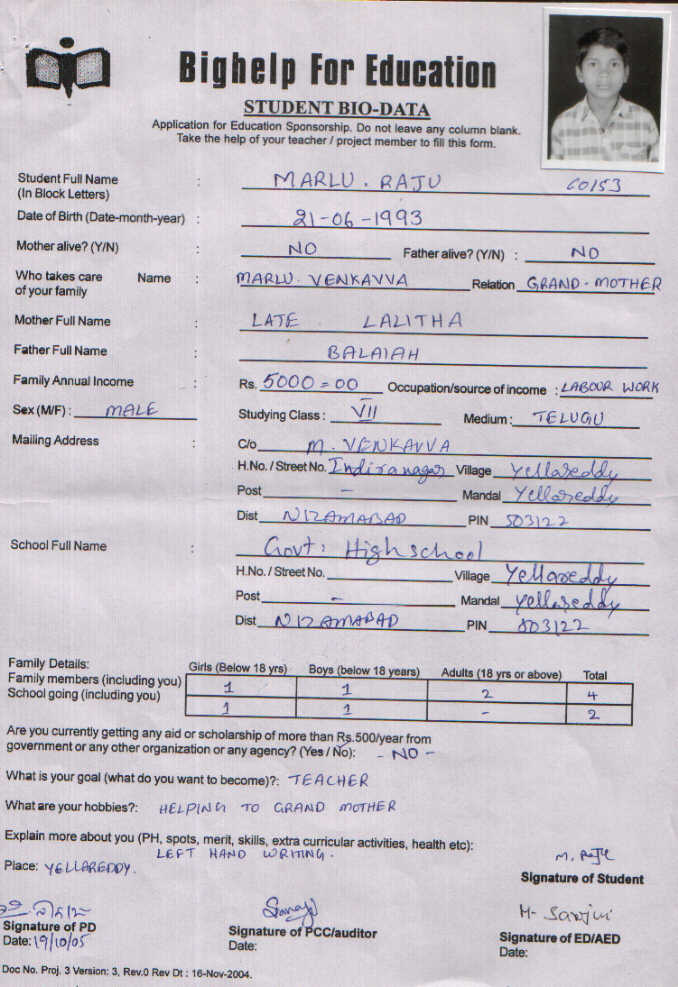 Bighelp For Education
STUDENT BIO-DATA
Application for Education Sponsorship. Do not leave any column blank.
Take the help of your teacher / project member to fill this form.
Student Full Name : MARLU. RAJU C0153
(In Block Letters)
Date of Birth (Date-month-year) : 21-06-1993
Mother alive? (Y/N) : NO Father alive? (Y/N) : NO
Who takes care Name : MARLU. VENKAVVA Relation GRAND-MOTHER
of your family
Mother Full Name : LATE LALITHA
Father Full Name : BALAIAH
Family Annual Income : Rs. 5000=00 Occupation/source of income : LABOUR WORK
Sex (M/F) : MALE Studying Class : VII Medium : TELUGU
Mailing Address : C/o M. VENKAVVA
H.No. / Street No. Indiranagar Village Yellareddy
Post - Mandal Yellareddy
Dist NIZAMABAD PIN 503122
School Full Name : Govt: High school
H.No. / Street No. Village Yellareddy
Post - Mandal Yellareddy
Dist NIZAMABAD PIN 503122
Family Details: Girls (Below 18 yrs) Boys (below 18 years) Adults (18 yrs or above) Total
Family members (including you) 1 1 2 4
School going (including you) 1 1 - 2
Are you currently getting any aid or scholarship of more than Rs.500/year from
government or any other organization or any agency? (Yes / No): - NO -
What is your goal (what do you want to become)?: TEACHER
What are your hobbies?: HELPING TO GRAND MOTHER
Explain more about you (PH, spots, merit, skills, extra curricular activities, health etc):
LEFT HAND WRITING.
Place: YELLAREDDY. M. Raju
Signature of Student
M. Sarojini
Signature of PD Signature of PCC/auditor Signature of ED/AED
Date: 19/10/05 Date: Date:
Doc No. Proj. 3 Version: 3, Rev.0 Rev Dt : 16-Nov-2004.